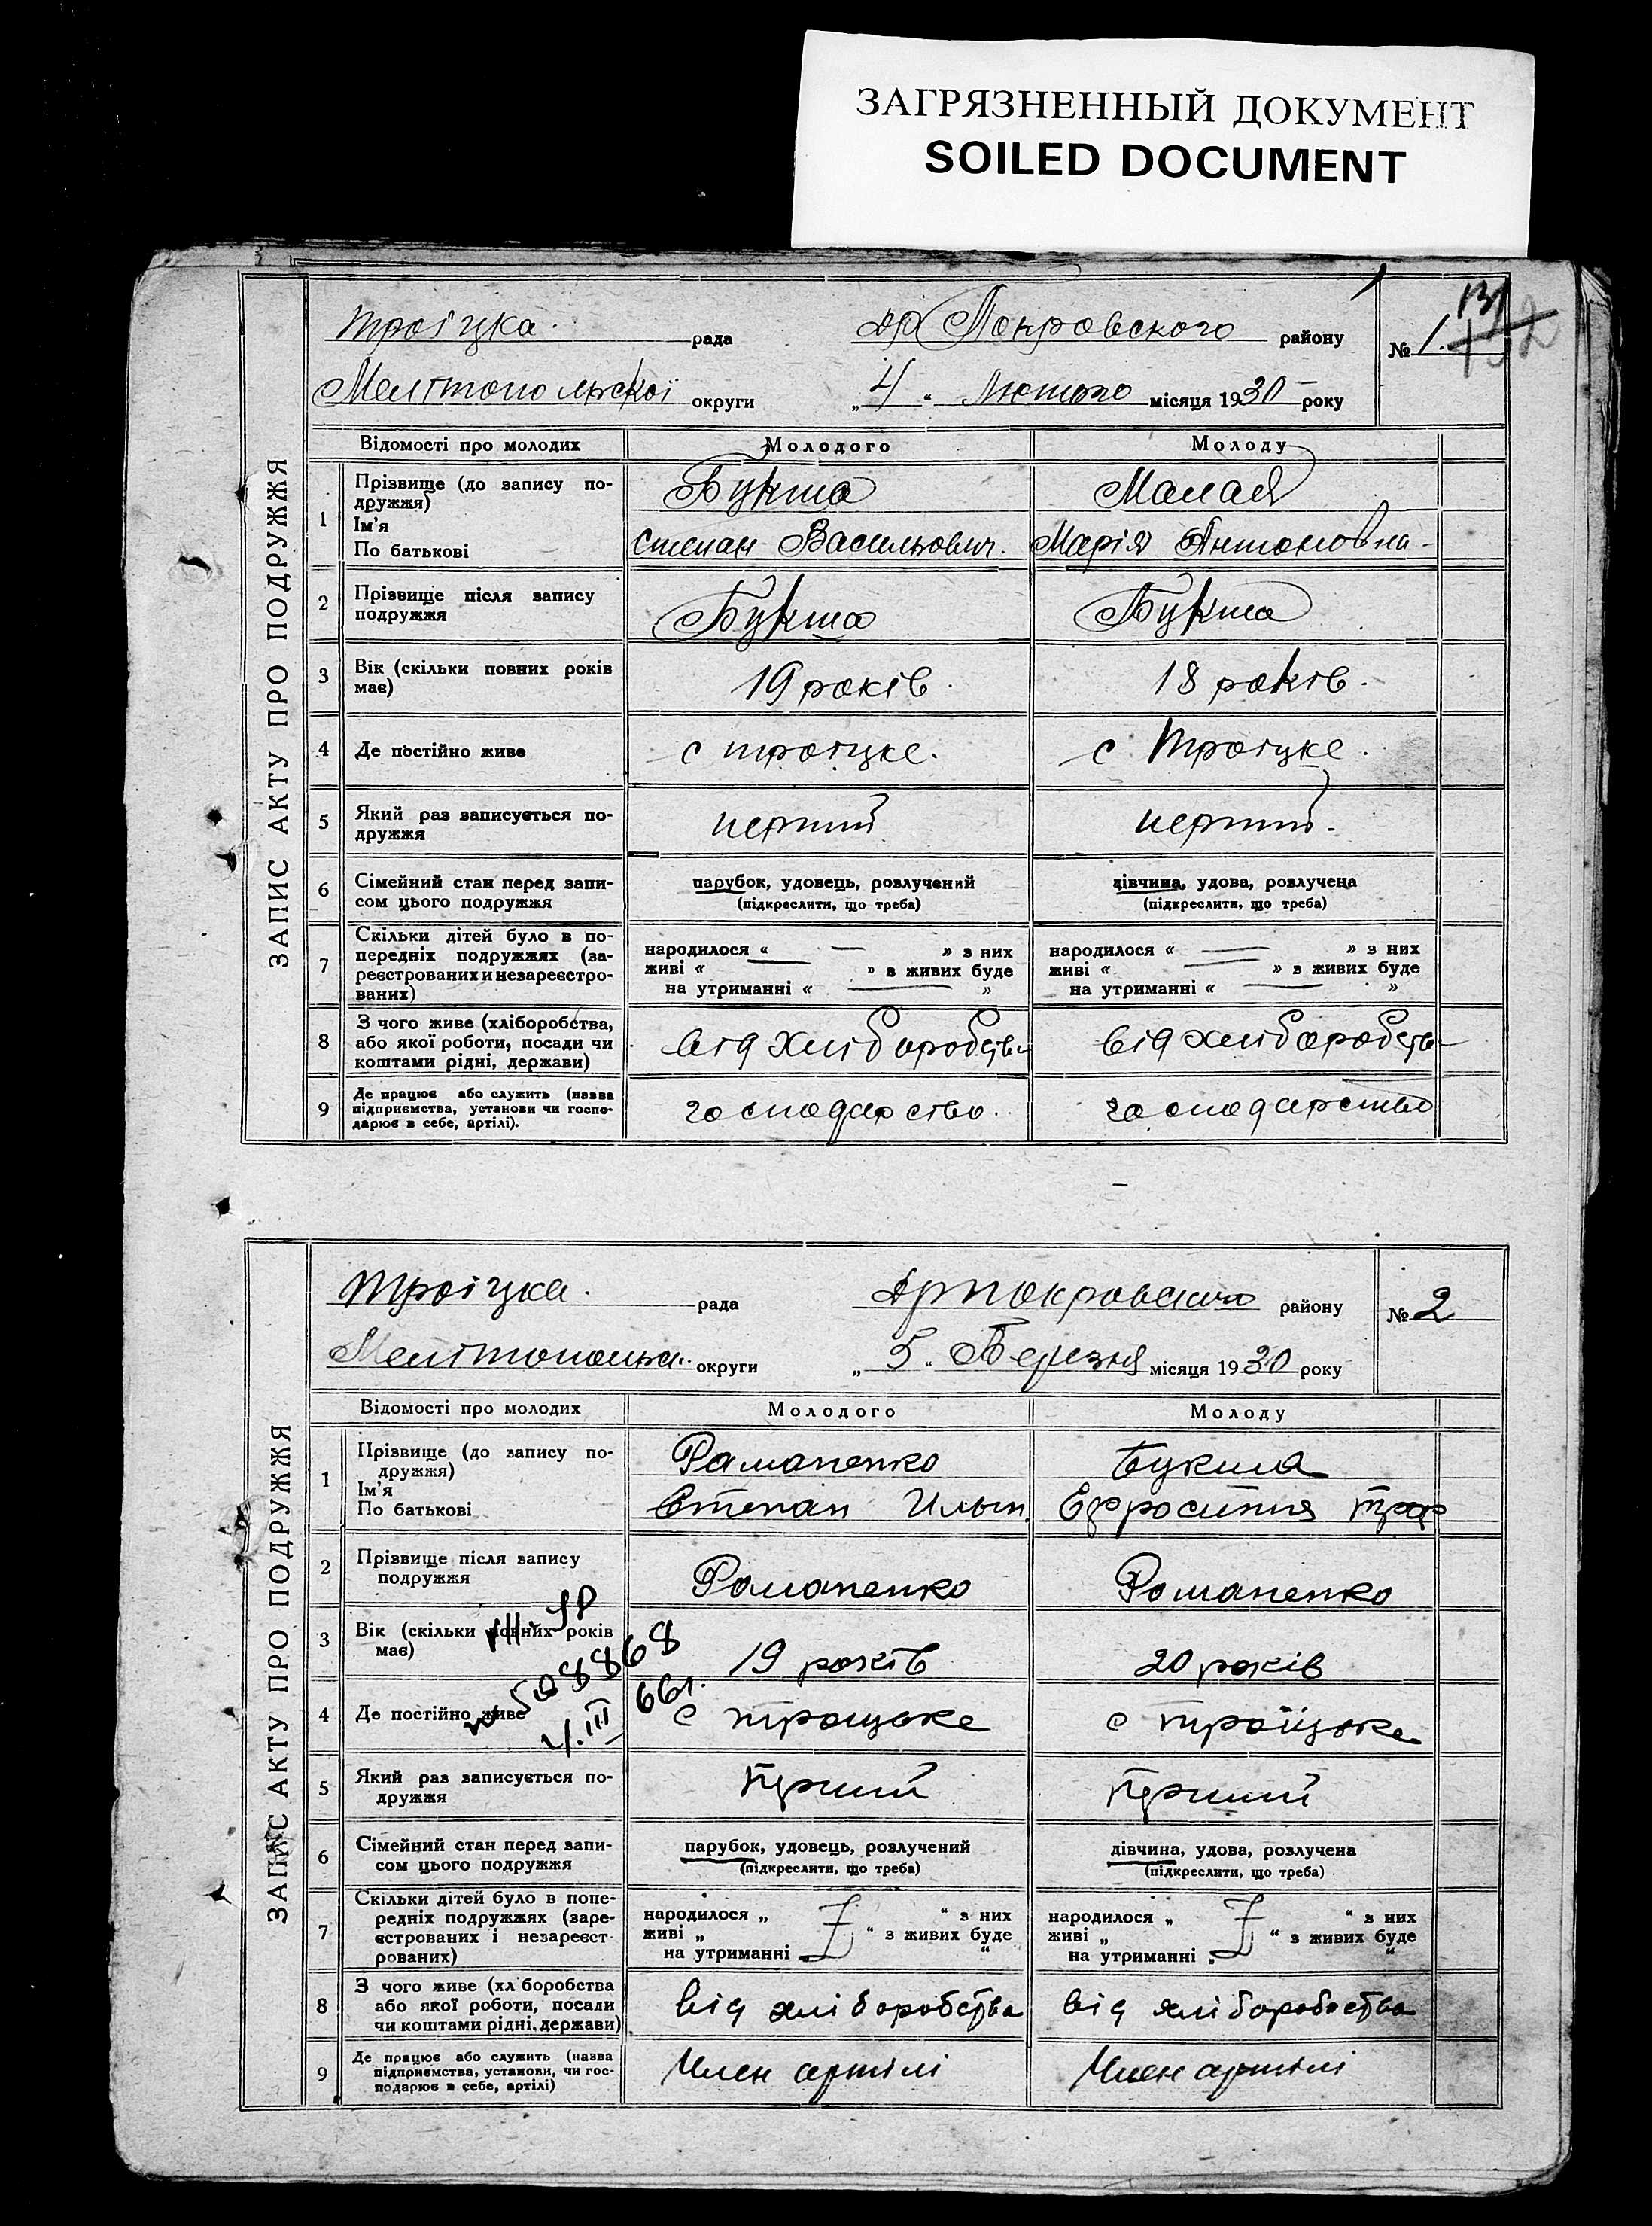 ЗАГРЯЗНЕННЫЙ ДОКУМЕНТ
SOILED DOCUMENT
ЗАПИС АКТУ ПРО ПОДРУЖЖЯ
Троіцка рада Покровского району № 1.
131
132
Мелітопольскої округи „4“ Лютого місяця 1930 року
Відомості про молодих Молодого Молоду
1 Прізвище (до запису по-
дружжя) Букша Малая
Ім'я
По батькові Степан Васильович. Марія Антоновна
2 Прізвище після запису
подружжя Букша Букша
3 Вік (скільки повних років
має) 19 років. 18 років.
4 Де постійно живе с троіцке. с Троіцке.
5 Який раз записується по-
дружжя перший перший.
6 Сімейний стан перед запи-
сом цього подружжя
парубок, удовець, розлучений дівчина, удова, розлучена
(підкреслити, що треба) (підкреслити, що треба)
7 Скільки дітей було в по-
передніх подружжях (за-
реєстрованих и незареєстро-
ваних)
народилося « — » з них народилося « — » з них
живі « » з живих буде живі « » з живих буде
на утриманні « — » на утриманні « — »
8 З чого живе (хліборобства,
або якої роботи, посади чи
коштами рідні, держави) від хліборобств від хліборобств
9 Де працює або служить (назва
підприємства, установи чи госпо-
дарює в себе, артілі). господарство. господарство
ЗАПИС АКТУ ПРО ПОДРУЖЖЯ
Троіцка. рада району № 2
округи „5“ Березня місяця 1930 року
Відомості про молодих Молодого Молоду
1 Прізвище (до запису по-
дружжя) Романенко Букша
Ім'я
По батькові Степан Ильич. Ефросиния Троф
2 Прізвище після запису
подружжя Романенко Романенко
3 Вік (скільки повних років
має) 19 років 20 років
4 Де постійно живе с троіцьке с троїцьке
5 Який раз записується по-
дружжя Перший Перший
6 Сімейний стан перед запи-
сом цього подружжя
парубок, удовець, розлучений дівчина, удова, розлучена
(підкреслити, що треба) (підкреслити, що треба)
7 Скільки дітей було в попе-
редніх подружжях (заре-
єстрованих і незареєст-
рованих)
народилося „ “ з них народилося „ “ з них
живі „ “ з живих буде живі „ “ з живих буде
на утриманні „ “ на утриманні „ “
8 З чого живе (хліборобства
або якої роботи, посади
чи коштами рідні, держави) від хліборобства від хліборобства
9 Де працює або служить (назва
підприємства, установи, чи гос-
подарює в себе, артілі) Член артілі Член артілі